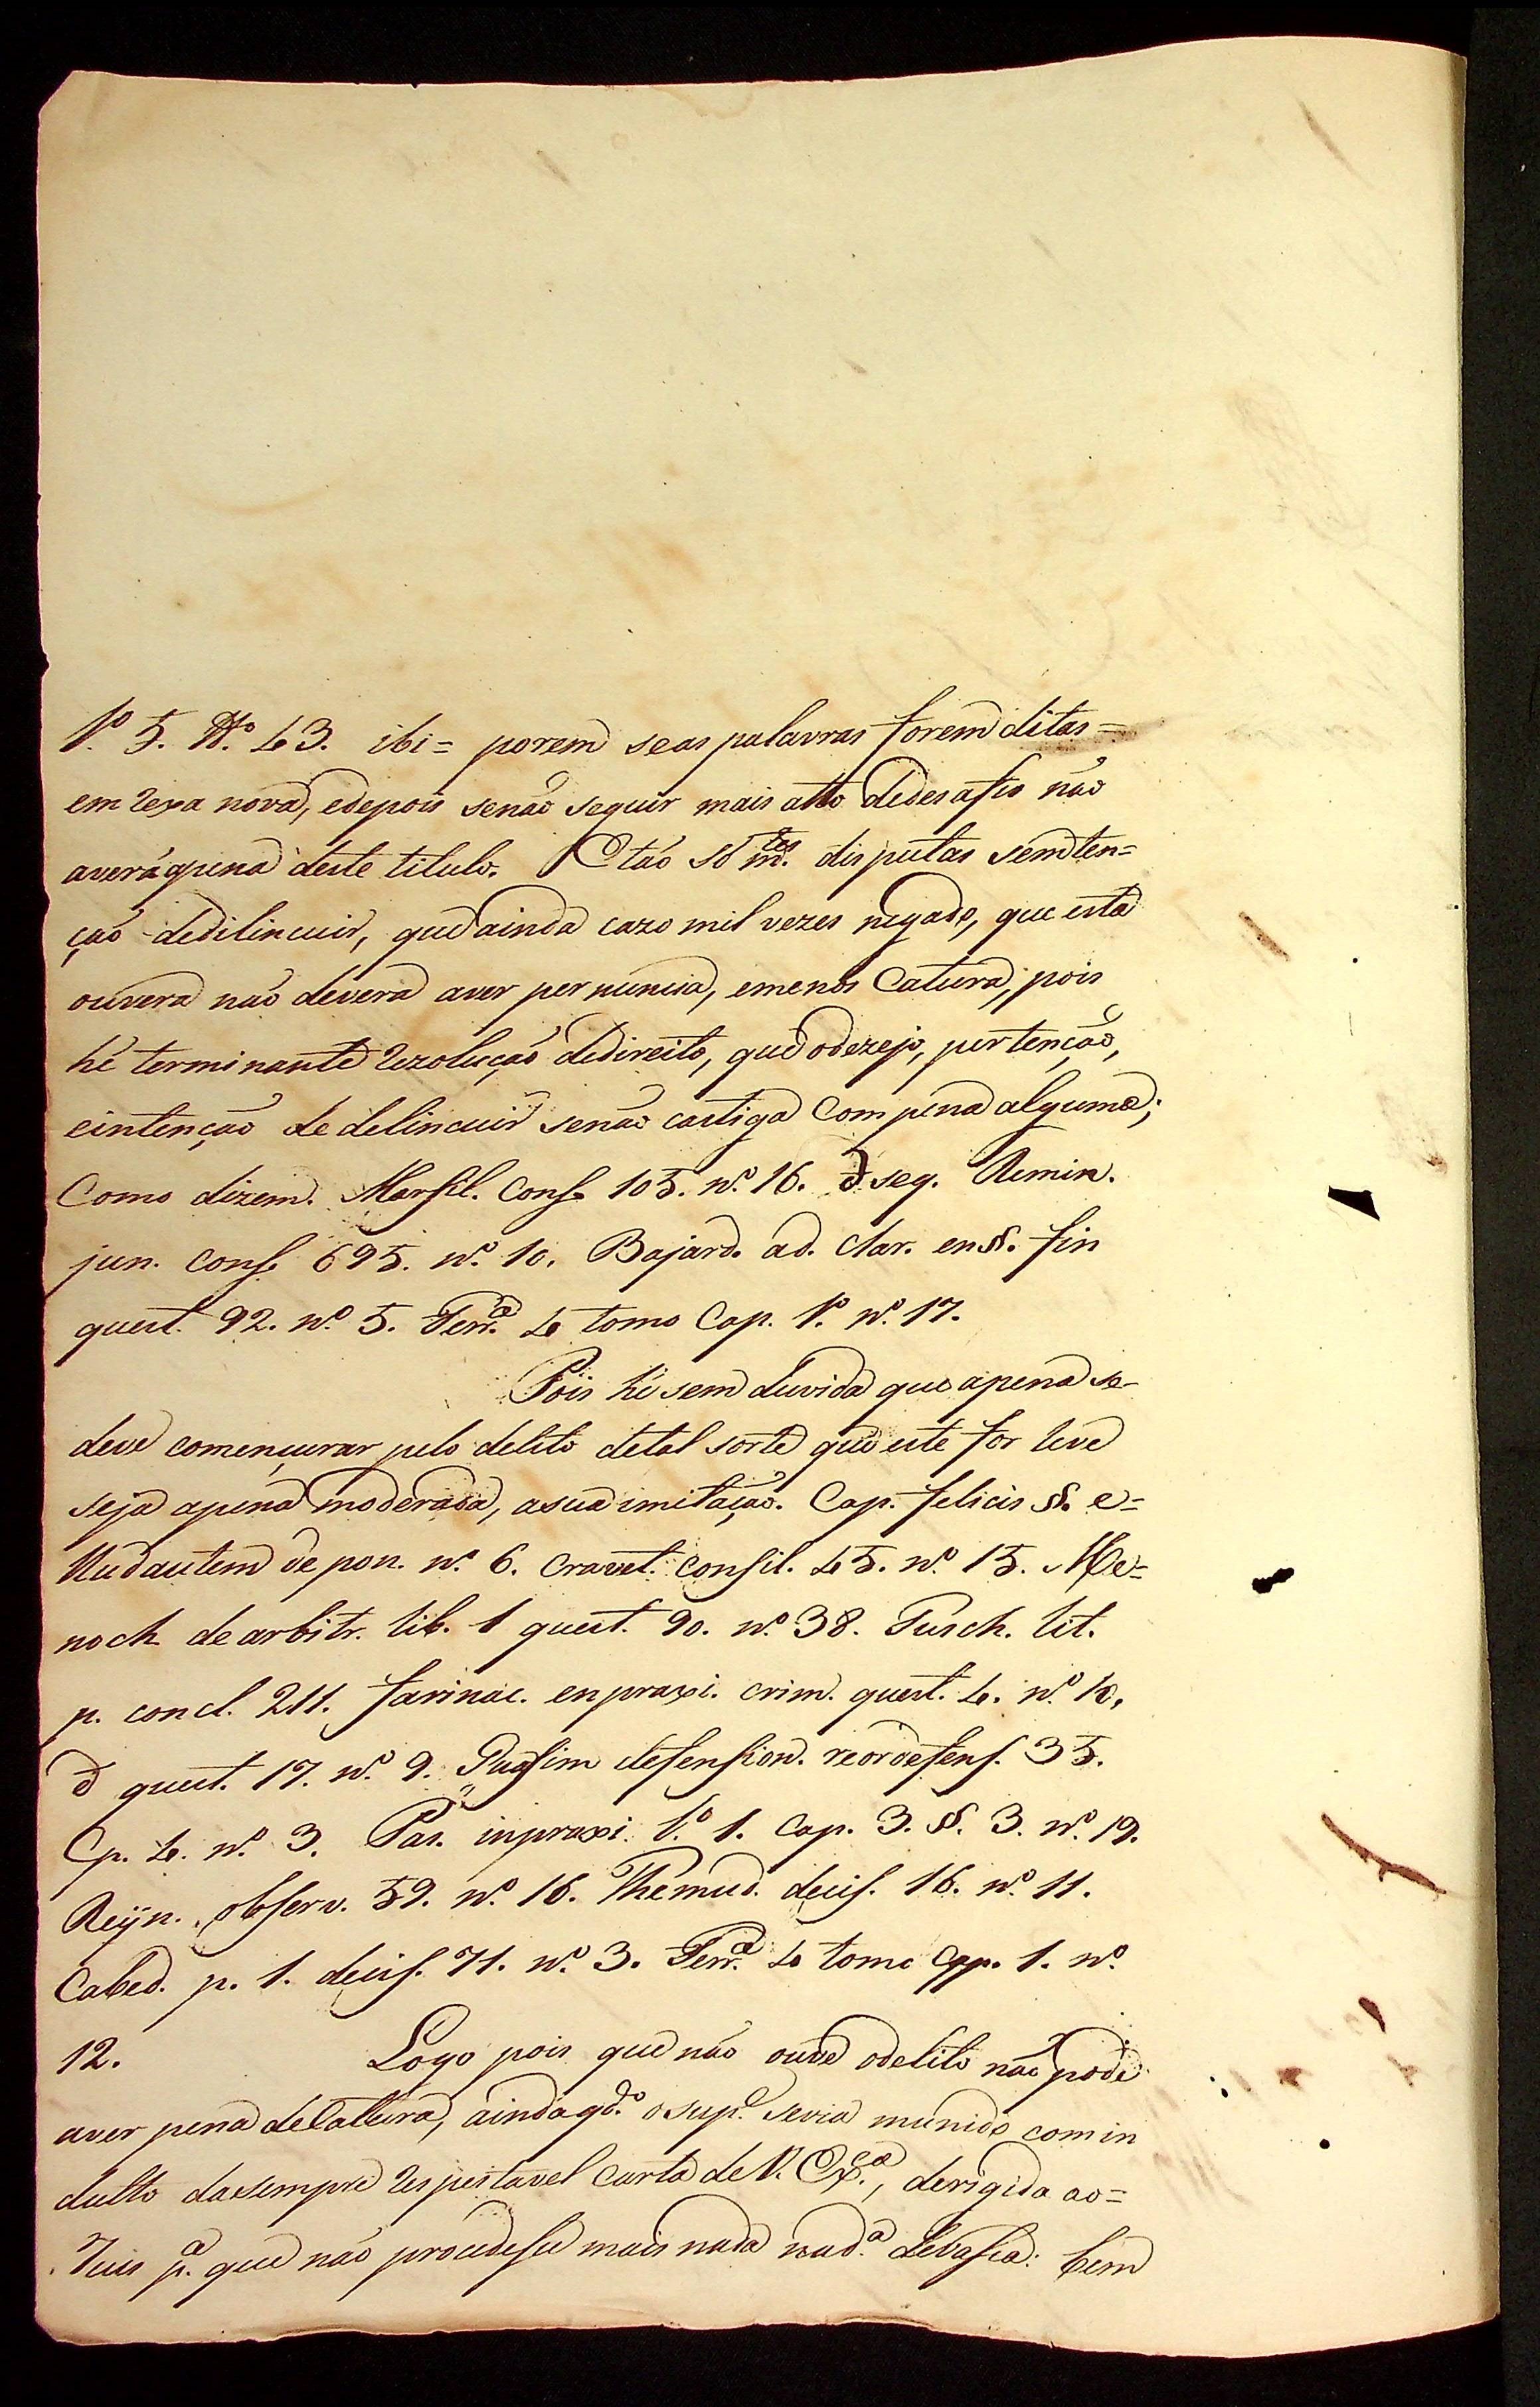 Lº 5. ttº 43. ibi= porem seas palavras forem ditas=
em rexa nova, edepois senão seguir mais atto dedesafio não
averá apena deste titulo. E tão só m.tes disputas semten=
ção dedilincuir, que ainda cazo mil vezes negado, que esta
ouvera não devera aver pernuncia, emenos Catura, pois
hé terminante rezolução dedireito, que odezejo, pertenção,
eintenção de delincuir senão castiga Com pena alguma;
Como dizem. Marsil. Cons. 105. nº 16. & seg. Nemin.
jun. cons. 695. nº 10. Bajard. ad. clar. en §. fin
quest. 92. nº 5. Ferr.ª 4 tomo Cap. 1º nº 17.
Pois hé sem duvida que apena se-
deve començurar pelo delito detal sorte que este for leve
seja apena moderada, asua imitação. Cap. felicis §. e=
Nudautem de pon. nº 6. Cravet. consil. 45. nº 15. Me=
noch de arbitr. lib. 1 quest. 90. nº 38. Pusch. lit.
p. concl. 211. farinac. en praxi. crim. quest. 4. nº 10,
& quest. 17. nº 9. Guasim defension. reordefens. 35.
Cp. 4. nº 3. Pas. inpraxi. tº 1. Cap. 3. §. 3. nº 19.
Reyn. observ. 59. nº 16. Themud. decis. 16. nº 11.
Cabed. p. 1. decis. 71. nº 3. Ferr.ª 4 tomo Cap. 1. nº
12. Logo pois que não ouve odelito não pode
aver pena deCatura, ainda qdº o sup.e seria munido com in
dulto dasempre respeitavel Carta de V. Ex.cia, derigida ao=
Juis p.ª que não procedese mais nada nad.ª devasca: bem